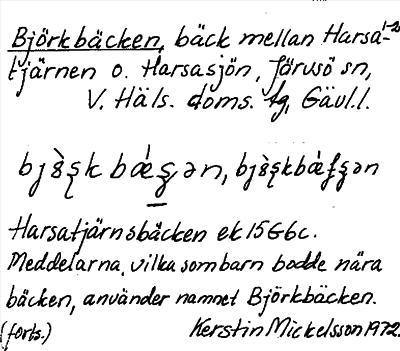 Björkbäcken, bäck mellan Harsa-
tjärnen o. Harsasjön, Järvsö sn,
V. Häls. doms. tg, Gävl.l.
Harsatjärnsbäcken ek 15G6c.
Meddelarna, vilka som barn bodde nära
bäcken, använder namnet Björkbäcken.
(forts.) Kerstin Mickelsson 1972.